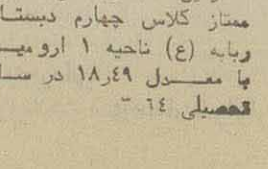 ممتاز کلاس چهارم دبستا
ربابه (ع) ناحیه ۱ ارومیـ
با معـــدل ۱۸٫۴۹ در سا
تحصیلی ٦٤ –